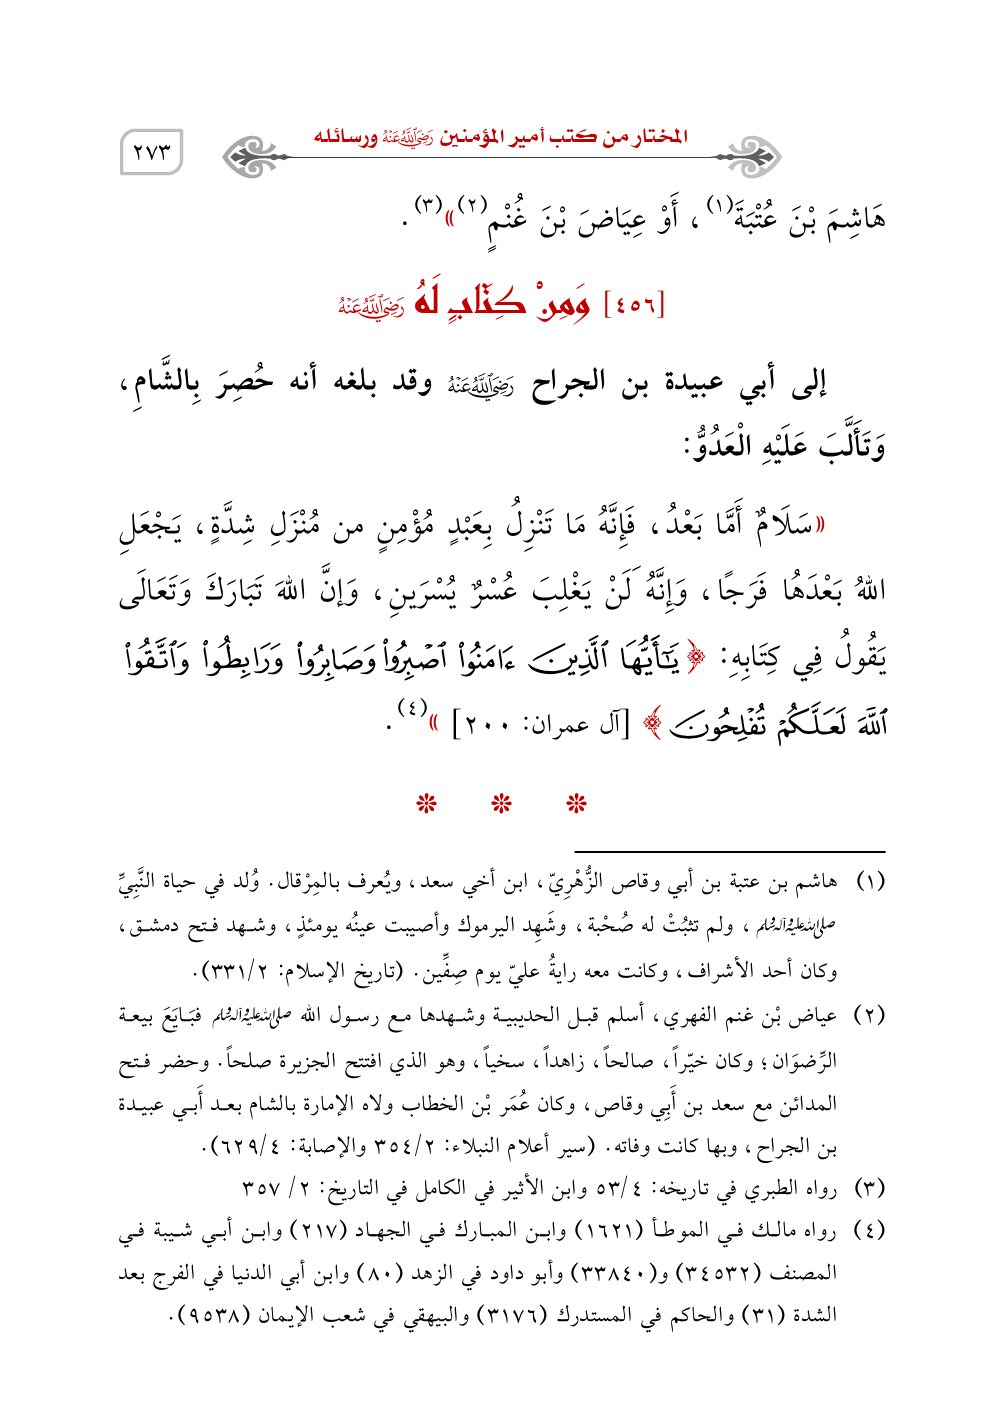 المختار من كتب أمير المؤمنين رَضِيَ اللَّهُ عَنْهُ ورسائله
٢٧٣
هَاشِمَ بْنَ عُتْبَةَ(١)، أَوْ عِيَاضَ بْنَ غُنْمٍ(٢)»(٣).
[٤٥٦] وَمِنْ كِتَابٍ لَهُ رَضِيَ اللَّهُ عَنْهُ
إلى أبي عبيدة بن الجراح رَضِيَ اللَّهُ عَنْهُ وقد بلغه أنه حُصِرَ بِالشَّامِ،
وَتَأَلَّبَ عَلَيْهِ الْعَدُوُّ:
«سَلَامٌ أَمَّا بَعْدُ، فَإِنَّهُ مَا تَنْزِلُ بِعَبْدٍ مُؤْمِنٍ من مُنْزَلِ شِدَّةٍ، يَجْعَلِ
اللهُ بَعْدَهَا فَرَجًا، وَإِنَّهُ لَنْ يَغْلِبَ عُسْرٌ يُسْرَينِ، وَإنَّ اللهَ تَبَارَكَ وَتَعَالَى
يَقُولُ فِي كِتَابِهِ: ﴿يَٰٓأَيُّهَا ٱلَّذِينَ ءَامَنُوا۟ ٱصْبِرُوا۟ وَصَابِرُوا۟ وَرَابِطُوا۟ وَٱتَّقُوا۟
ٱللَّهَ لَعَلَّكُمْ تُفْلِحُونَ﴾ [آل عمران: ٢٠٠]»(٤).
(١) هاشم بن عتبة بن أبي وقاص الزُّهْرِيّ، ابن أخي سعد، ويُعرف بالمِرْقال. وُلد في حياة النَّبِيِّ
صلى الله عليه وآله وسلم، ولم تثبُتْ له صُحْبة، وشَهِد اليرموك وأصيبت عينُه يومئذٍ، وشـهد فـتح دمشـق،
وكان أحد الأشراف، وكانت معه رايةُ عليّ يوم صِفِّين. (تاريخ الإسلام: ٣٣١/٢).
(٢) عياض بْن غنم الفهري، أسلم قبـل الحديبيـة وشـهدها مـع رسـول الله صلى الله عليه وآله وسلم فبَـايَعَ بيعـة
الرِّضوَان؛ وكان خيّراً، صالحاً، زاهداً، سخياً، وهو الذي افتتح الجزيرة صلحاً. وحضر فـتح
المدائن مع سعد بن أَبِي وقاص، وكان عُمَر بْن الخطاب ولاه الإمارة بالشام بعـد أَبـي عبيـدة
بن الجراح، وبها كانت وفاته. (سير أعلام النبلاء: ٣٥٤/٢ والإصابة: ٦٢٩/٤).
(٣) رواه الطبري في تاريخه: ٥٣/٤ وابن الأثير في الكامل في التاريخ: ٢/ ٣٥٧
(٤) رواه مالـك فـي الموطـأ (١٦٢١) وابـن المبـارك فـي الجهـاد (٢١٧) وابـن أبـي شـيبة فـي
المصنف (٣٤٥٣٢) و(٣٣٨٤٠) وأبو داود في الزهد (٨٠) وابن أبي الدنيا في الفرج بعد
الشدة (٣١) والحاكم في المستدرك (٣١٧٦) والبيهقي في شعب الإيمان (٩٥٣٨).